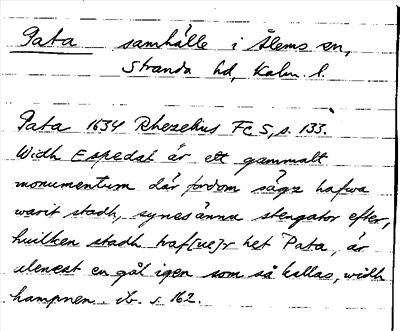 Pata samhälle i Ålems sn,
Stranda hd, Kalm. l.
Pata 1634 Rhezelius FcS, s. 133.
Widh Espedal är ett gammalt
monumentum där fordom säga hafwa
warit stadh, synes änna stengator efter,
huilken stadh haf[ue]r het Pata, är
alenest en gål igen som så kallas, widh
hampnen ib. s. 162.